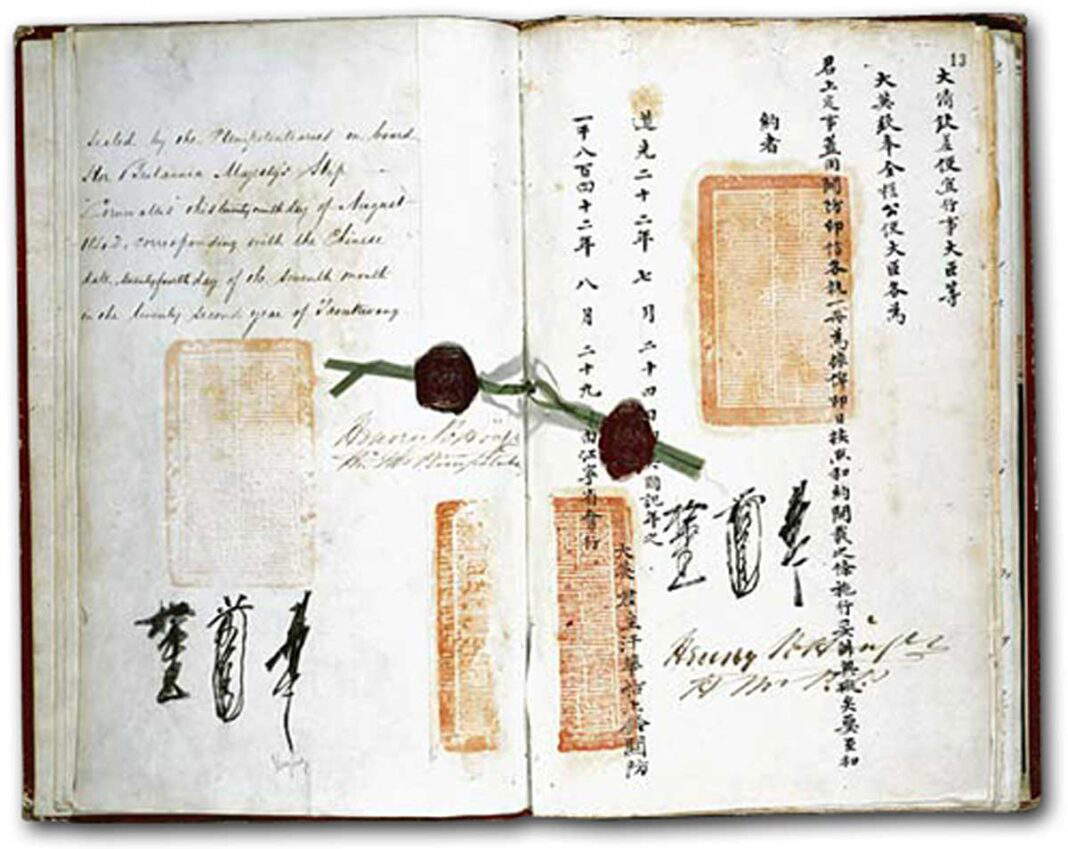 Sealed by the Plenipotentiaries on board
Her Britannic Majesty's Ship
"Cornwallis" this twenty ninth day of August
1842, corresponding with the Chinese
date, twenty fourth day of the seventh month
in the twenty second year of Taoukwang
Henry Pottinger
13
大清欽差便宜行事大臣等
大英欽奉全權公使大臣各為
君上定事蓋用關防印信各執一冊為據俾即日按照和約開載之條施行妥辦無礙矣要至和
約者
道光二十二年七月二十四日國記年之
一千八百四十二年八月二十九由江寧省會行
大英君主汗華船上鈐關防
Henry Pottinger